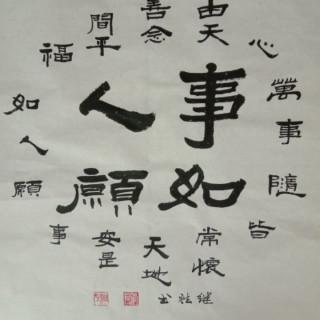 萬事隨
心皆
由天常懷
善念天地
間平安是
福事
如人願
事如
人願
继 书